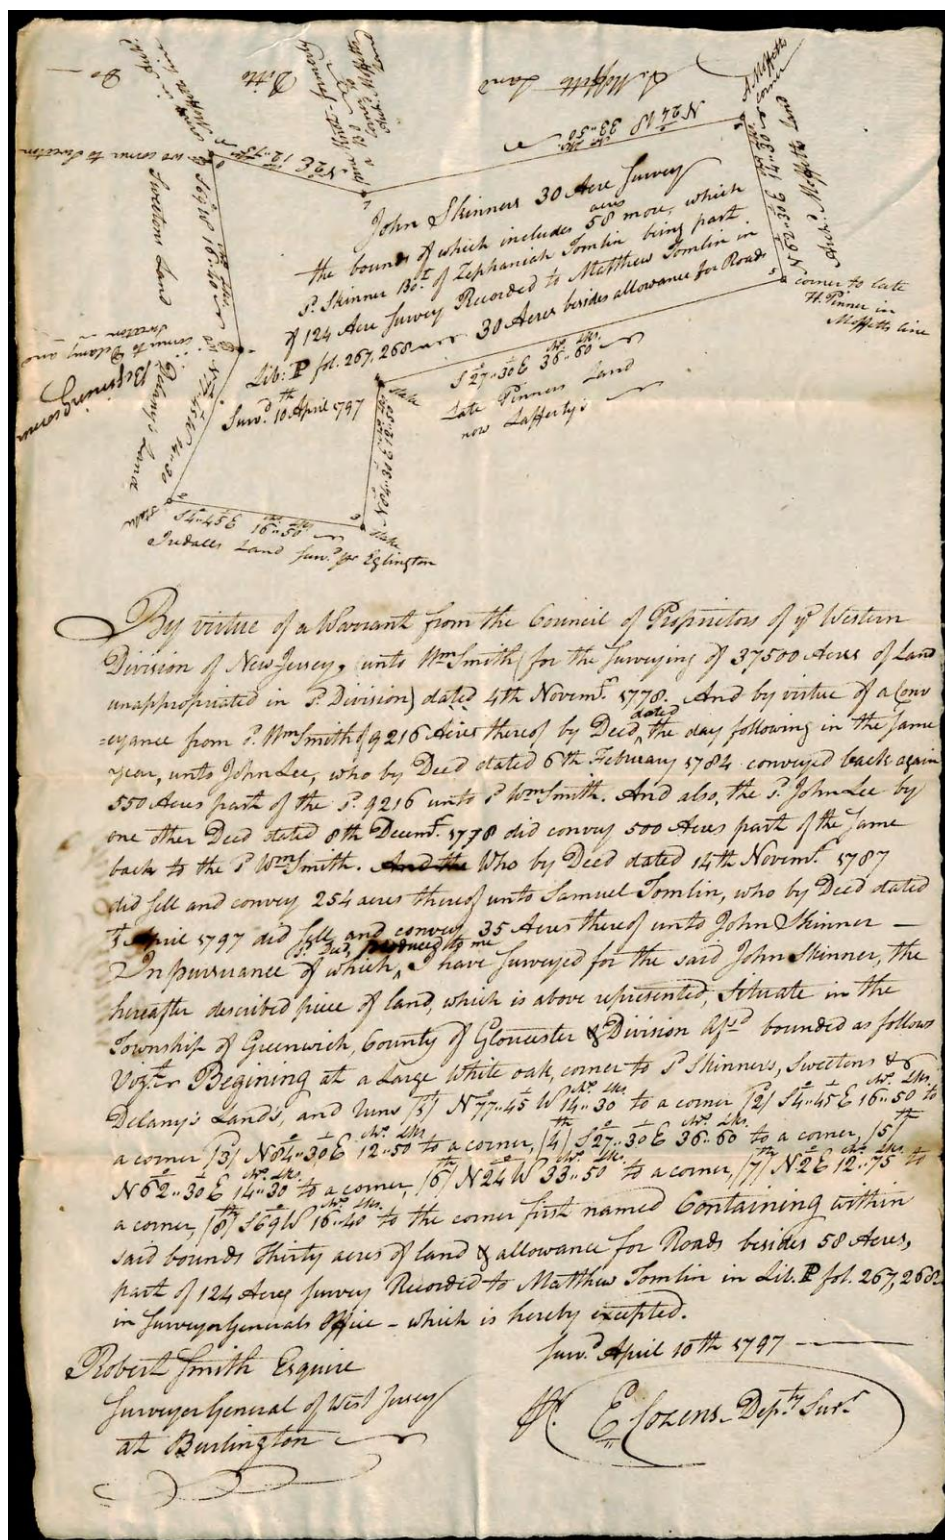 A. Moffetts Land
Ditto
Do
A Moffetts corner
N 24 W 33..50
N 2 E 12..75
S 69 W 16..40
Sweetens Land
N 62..30 E 14..30
Archd. Moffetts Land
corner to late
H. Pinner in
Moffetts line
John Skinners 30 Acre Survey
the bounds of which includes 58 acres more, which
Sd. Skinner Bot. of Zephaniah Tomlin being part
of 124 Acre Survey Recorded to Matthew Tomlin in
Lib: P fol. 267, 268 30 Acres besides allowance for Roads
Survd. 10th April 1797
S 27..30 E 36..60
Late Pinners Land
now Laffertys
stake
N 84..30 E 12..50
corner to Delany and
Sweeten
Begining corner
N 77..45 W 14..30
Delany's Land
stake
S 4..45 E 16..50
stake
Tudalls Land Survd. pr Eglington
By virtue of a Warrant from the Council of Proprietors of ye Western
Division of New Jersey, (unto Wm Smith) for the Surveying of 37500 Acres of Land
unappropriated in Sd. Division) dated 4th Novemr. 1778. And by virtue of a Conv
=eyance from Sd. Wm Smith of 9216 Acres thereof by Deed, dated the day following in the same
year, unto John Lee, who by Deed dated 6th February 1784 conveyed back again
550 Acres part of the Sd. 9216 unto Sd Wm Smith. And also, the Sd. John Lee by
one other Deed dated 8th Decemr. 1778 did convey 500 Acres part of the same
back to the Sd Wm Smith. And the Who by Deed dated 14th Novemr. 1787
did sell and convey 254 acres thereof unto Samuel Tomlin, who by Deed dated
April 1797 did sell and convey 35 Acres thereof unto John Skinner —
In pursuance of which, Sd. Deed, produced to me I have Surveyed for the said John Skinner, the
hereafter described piece of land, which is above represented, Situate in the
Township of Greenwich, County of Gloucester & Division Afsd. bounded as follows
Vizt. Begining at a Large White oak, corner to Sd Skinners, Sweetens &
Delany's Lands, and runs (1) N 77..45 W 14..30 to a corner (2) S 4..45 E 16..50 to
a corner (3) N 84..30 E 12..50 to a corner, (4) S 27..30 E 36..60 to a corner, (5th)
N 62..30 E 14..30 to a corner, (6th) N 24 W 33..50 to a corner, (7th) N 2 E 12..75 to
a corner, (8th) S 69 W 16..40 to the corner first named Containing within
said bounds Thirty acres of land & allowance for Roads besides 58 Acres,
part of 124 Acres Survey Recorded to Matthew Tomlin in Lib. P fol. 267, 268
in Surveyor Generals Office - which is hereby excepted.
Survd. April 10th 1797
Robert Smith Esquire
Surveyor General of West Jersey
at Burlington
Pr. E Cozens Depty Survr.